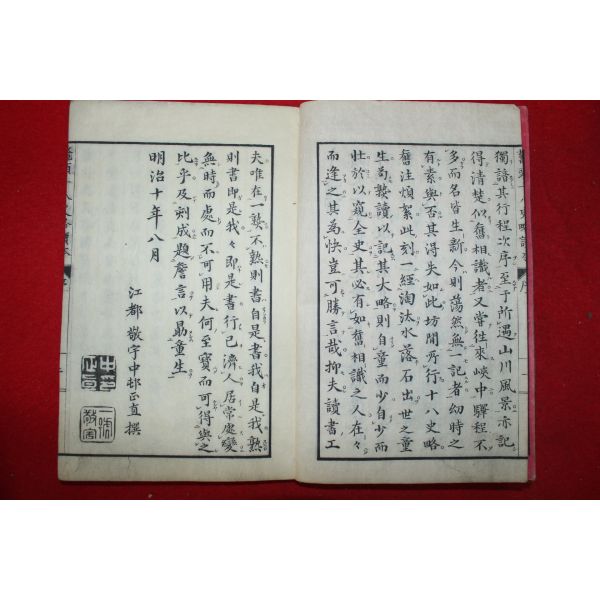 獨諳其行程次序至于所過山川風景亦記
得清楚似舊相識者又嘗往來峽中驛程不
多而名皆生新今則蕩然無一記者幼時之
有素與否其得失如此坊間所行十八史略
舊注煩絮此刻一經淘汰水落石出世之童
生苟熟讀以記其大略則自童而少自少而
壯於以窺全史其必有如舊相識之人在々
而逢之其為快豈可勝言哉抑夫讀書工
夫唯在一熟不熟則書自是書我自是我熟
則書即是我々即是書行己濟人居常處變
無時而處而不可用夫何至寶而可得與之
比乎及刻成題詹言以勗童生
明治十年八月
江都 敬宇中邨正直 撰